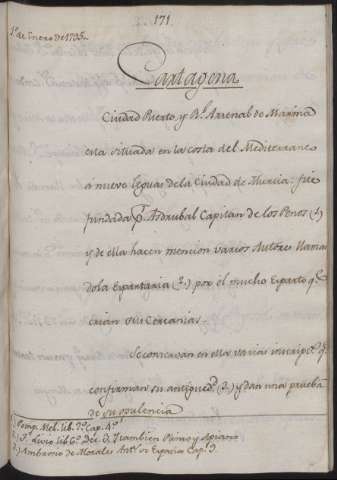 171
1º de Enero de 1795.
Cartagena
Ciudad Puerto, y Rl. Arsenal de Marina
esta situada en la costa del Mediterraneo
á nueve leguas de la Ciudad de Murcia: fue
fundada pr. Asdrubal Capitan de los Penos (1)
y de ella hacen mencion varios Autores llaman
dola Espartaria (2) por el mucho Esparto qe.
crian sus Cercanias.
Se conservan en ella varias inscripcs. qe.
confirman su antigued. (3) y dan una prueba
de su opulencia.
1) Pomp. Mel. lib. 2º Cap. 4º
2) T. Livio lib 6º Dec. 3. Tambien Plinio y Apiano
3) Ambrosio de Morales Antº. de España Cap. 9.